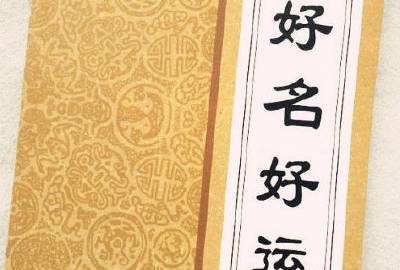 好名好运